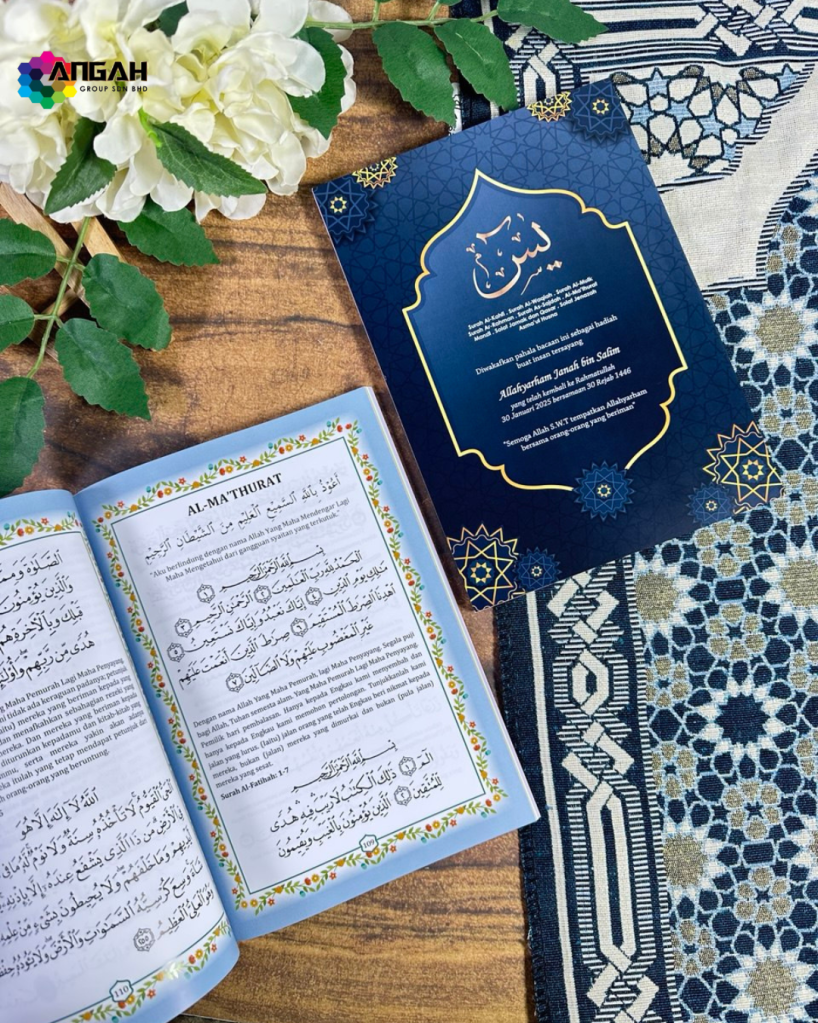 ANGAH
GROUP SDN BHD
يس
Surah Al-Kahfi . Surah Al-Waqiah . Surah Al-Mulk
Surah Ar-Rahman . Surah As-Sajdah . Al-Ma'thurat
Manzil . Solat Jamak dan Qasar . Solat Jenazah
Asma'ul Husna
Diwakafkan pahala bacaan ini sebagai hadiah
buat insan tersayang
Allahyarham Janah bin Salim
yang telah kembali ke Rahmatullah
30 Januari 2025 bersamaan 30 Rejab 1446
"Semoga Allah S.W.T tempatkan Allahyarham
bersama orang-orang yang beriman"
AL-MA'THURAT
أَعُوذُ بِاللَّهِ السَّمِيعِ الْعَلِيمِ مِنَ الشَّيْطَانِ الرَّجِيمِ
"Aku berlindung dengan nama Allah Yang Maha Mendengar Lagi
Maha Mengetahui dari gangguan syaitan yang terkutuk."
بِسْمِ اللَّهِ الرَّحْمَنِ الرَّحِيمِ
الْحَمْدُ لِلَّهِ رَبِّ الْعَالَمِينَ ۝ الرَّحْمَنِ الرَّحِيمِ ۝
مَالِكِ يَوْمِ الدِّينِ ۝ إِيَّاكَ نَعْبُدُ وَإِيَّاكَ نَسْتَعِينُ ۝
اهْدِنَا الصِّرَاطَ الْمُسْتَقِيمَ ۝ صِرَاطَ الَّذِينَ أَنْعَمْتَ عَلَيْهِمْ
غَيْرِ الْمَغْضُوبِ عَلَيْهِمْ وَلَا الضَّالِّينَ ۝
Dengan nama Allah Yang Maha Pemurah, lagi Maha Penyayang. Segala puji
bagi Allah, Tuhan semesta alam. Yang Maha Pemurah Lagi Maha Penyayang.
Pemilik hari pembalasan. Hanya kepada Engkau kami menyembah dan
hanya kepada Engkau kami memohon pertolongan. Tunjukkanlah kami
jalan yang lurus. (Iaitu) jalan orang yang telah Engkau beri nikmat kepada
mereka, bukan (jalan) mereka yang dimurkai dan bukan (pula jalan)
mereka yang sesat.
Surah Al-Fatihah: 1-7
بِسْمِ اللَّهِ الرَّحْمَنِ الرَّحِيمِ
الم ۝ ذَلِكَ الْكِتَابُ لَا رَيْبَ فِيهِ هُدًى
لِلْمُتَّقِينَ ۝ الَّذِينَ يُؤْمِنُونَ بِالْغَيْبِ وَيُقِيمُونَ
109
الصَّلَاةَ وَمِمَّا
وَالَّذِينَ يُؤْمِنُونَ
قَبْلِكَ وَبِالْآخِرَةِ هُمْ
هُدًى مِنْ رَبِّهِمْ وَأُولَئِكَ
Maha Pemurah Lagi Maha Penyayang.
tidak ada keraguan padanya; petunjuk
mereka yang beriman kepada yang
dan menafkahkan sebahagian rezeki yang
mereka. Dan mereka yang beriman kepada
diturunkan kepadamu dan kitab-kitab yang
serta mereka yakin akan adanya
itulah yang tetap mendapat petunjuk dari
orang-orang yang beruntung.
اللَّهُ لَا إِلَهَ إِلَّا هُوَ
الْحَيُّ الْقَيُّومُ لَا تَأْخُذُهُ سِنَةٌ وَلَا نَوْمٌ لَهُ مَا فِي
الْأَرْضِ مَنْ ذَا الَّذِي يَشْفَعُ عِنْدَهُ إِلَّا بِإِذْنِهِ
أَيْدِيهِمْ وَمَا خَلْفَهُمْ وَلَا يُحِيطُونَ بِشَيْءٍ مِنْ عِلْمِهِ
شَاءَ وَسِعَ كُرْسِيُّهُ السَّمَوَاتِ وَالْأَرْضَ وَلَا يَئُودُهُ حِفْظُهُمَا
وَهُوَ الْعَلِيُّ الْعَظِيمُ
110